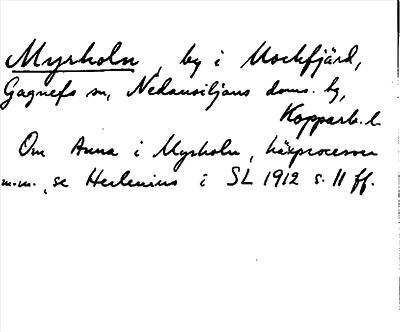 Myrholn, by i Mockfjärd,
Gagnefs sn, Nedansiljans doms. hg,
Kopparb. l.
Om Anna i Myrholn, häxprocesser
m.m., se Herlenius i SL 1912 s. 11 ff.